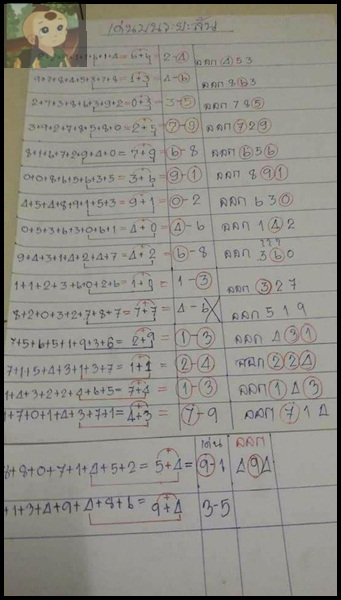 9+2+8+4+5+3+7+8= 1+3 = 4-6 ออก 863
2+7+3+8+6+3+9+2=0+3 = 3-5 ออก 785
3+9+2+7+8+5+8+0=2+5 = 7-9 ออก 729
8+1+6+7+2+9+4+0= 7+9 = 6-8 ออก 656
0+0+8+6+5+6+3+5= 3+6 = 9-1 ออก 891
4+5+4+8+9+1+5+3= 9+1 = 0-2 ออก 630
0+5+3+6+3+0+6+1= 4+0 = 4-6 ออก 142
9+4+3+1+4+2+4+7= 4+2 = 6-8 ออก 360
1+1+2+3+6+0+2+6= = 1-3 ออก 327
8+2+0+3+2+7+8+7= 7+7 = 4-6 ออก 519
+5+6+5+1+9+3+6= 2+9 = 1-3 ออก 431
7+1+5+4+3+1+3+7= 1+1 = 2-4 ออก 224
+4+3+2+2+4+6+5= 7+4 = 1-3 ออก 143
+7+0+1+4+3+7+1= 4+3 = 7-9 ออก 714
เด่น ออก
+8+0+7+1+4+5+2 = 5+4 = 9-1 494
+1+3+4+9+4+8+6= 9+4 3-5